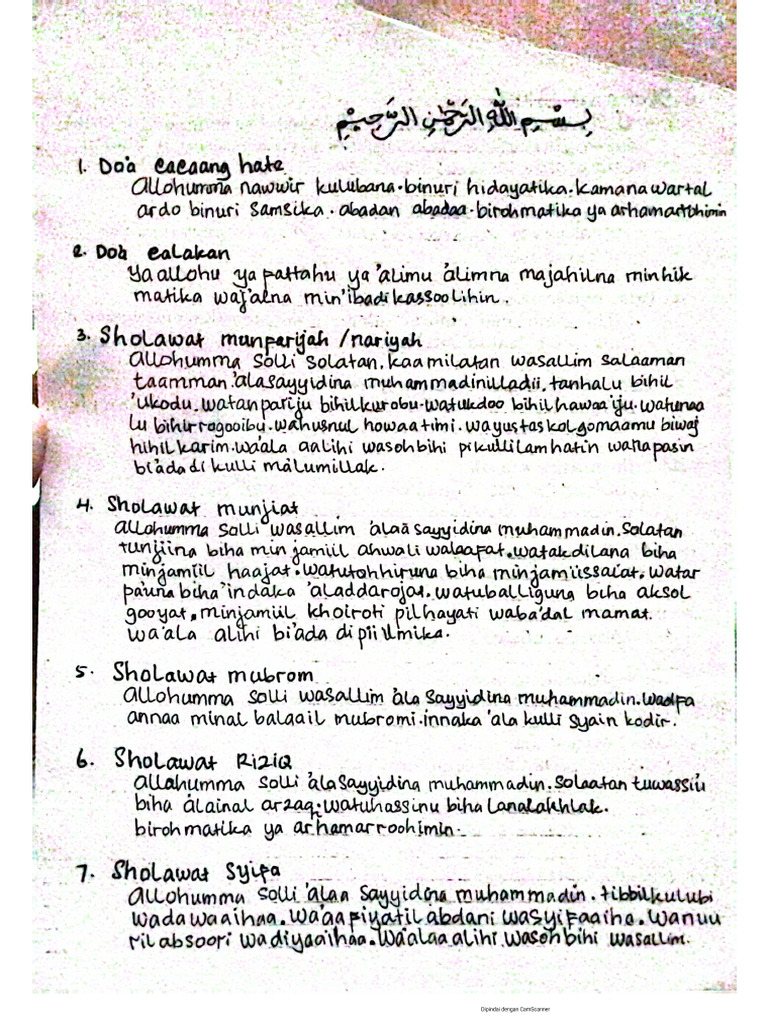 بِسْمِ اللَّهِ الرَّحْمٰنِ الرَّحِيْمِ
1. Do'a cacaang hate
Allohumma nawwir kulubana. binuri hidayatika. kamana wartal
ardo binuri samsika. abadan abadaa. birohmatika ya arhamarrohimin
2. Do'a calakan
Ya allohu ya pattahu ya 'alimu 'alimna majahilna minhik
matika waj'alna min'ibadikassoolihin.
3. Sholawat munparijah/nariyah
Allohumma solli solatan. kaamilatan wasallim salaaman
taamman. 'ala sayyidina muhammadinilladii. tanhalu bihil
'ukodu. watanpariju bihilkurobu. watukdoo bihil hawaa'iju. watunaa
lu bihirrogooibu. wahusnul howaatimi. wayustaskolgomaamu biwaj
hihil karim. wa'ala aalihi wasohbihi pikullilamhatin wanapasin
bi'adadi kulli ma'lumillak.
4. Sholawat munjiat
Allohumma solli wasallim 'alaa sayyidina muhammadin. Solatan
tunjiina biha min jamiil ahwali walaapat. watakdilana biha
minjamiil haajat. watutohhiruna biha minjamiissaiat. watar
pa'una biha 'indaka 'aladdarojat. watuballiguna biha aksol
gooyat, minjamiil khoiroti pilhayati waba'dal mamat.
Wa'ala alihi bi'ada di piilmika.
5. Sholawat mubrom
Allohumma solli wasallim 'ala sayyidina muhammadin. wadfa
annaa minal balaail mubromi. innaka 'ala kulli syain kodir.
6. Sholawat Riziq
Allahumma solli 'ala sayyidina muhammadin. solaatan tuwassi'u
biha 'alainal arzaq. watuhassinu biha lanalakhlak.
birohmatika ya arhamarroohimin.
7. Sholawat Syifa
Allohumma solli 'alaa sayyidina muhammadin. tibbilkulubi
wadawaaihaa. wa'aafiyatil abdani wasyifaaiha. wanuu
ril absoori wadiyaaihaa. wa'alaa alihi wasohbihi wasallim.
Dipindai dengan CamScanner